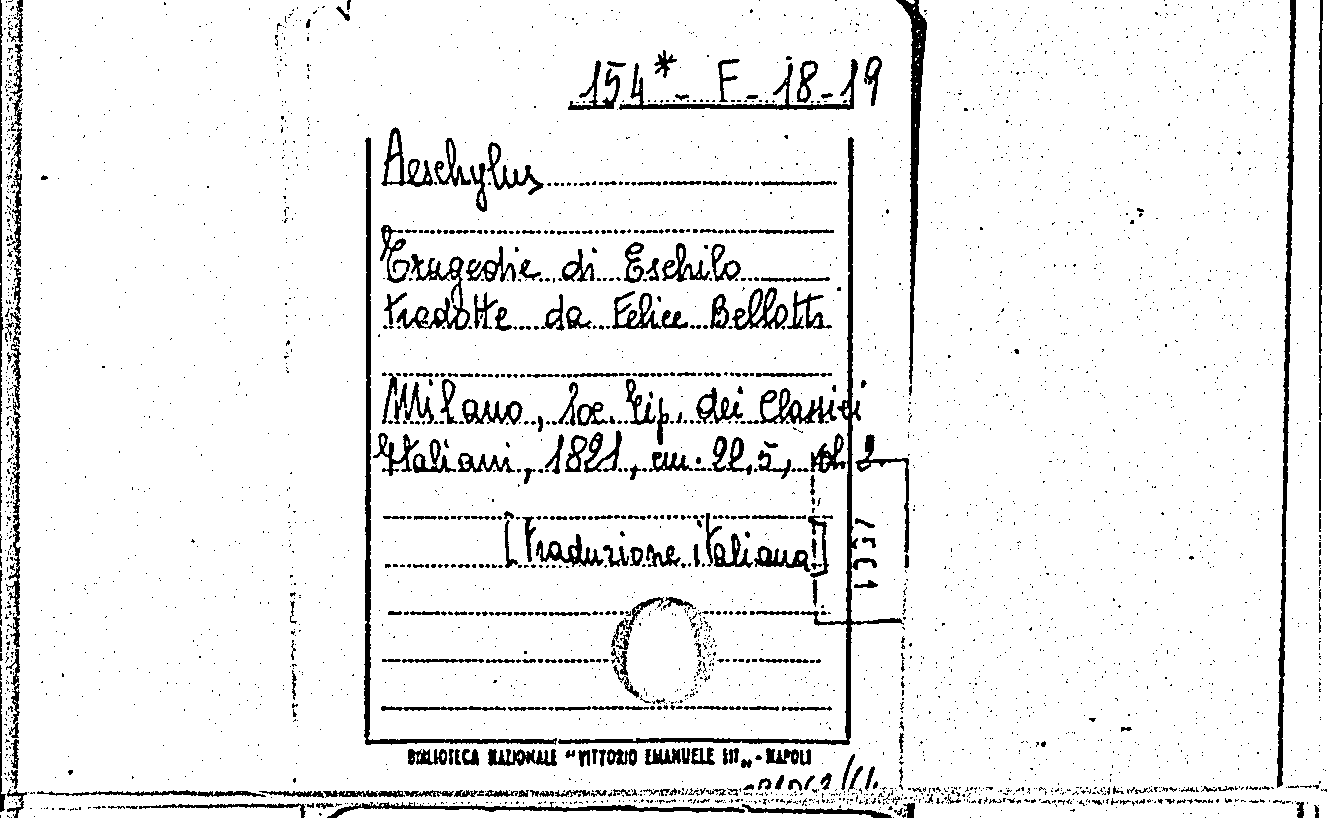 154* - F - 18-19
Aeschylus
Tragedie di Eschilo
tradotte da Felice Bellotti
Milano, Soc. Tip. dei Classici
Italiani, 1821, cm. 22,5, vol. 2
[traduzione italiana]
BIBLIOTECA NAZIONALE "VITTORIO EMANUELE III„ - NAPOLI